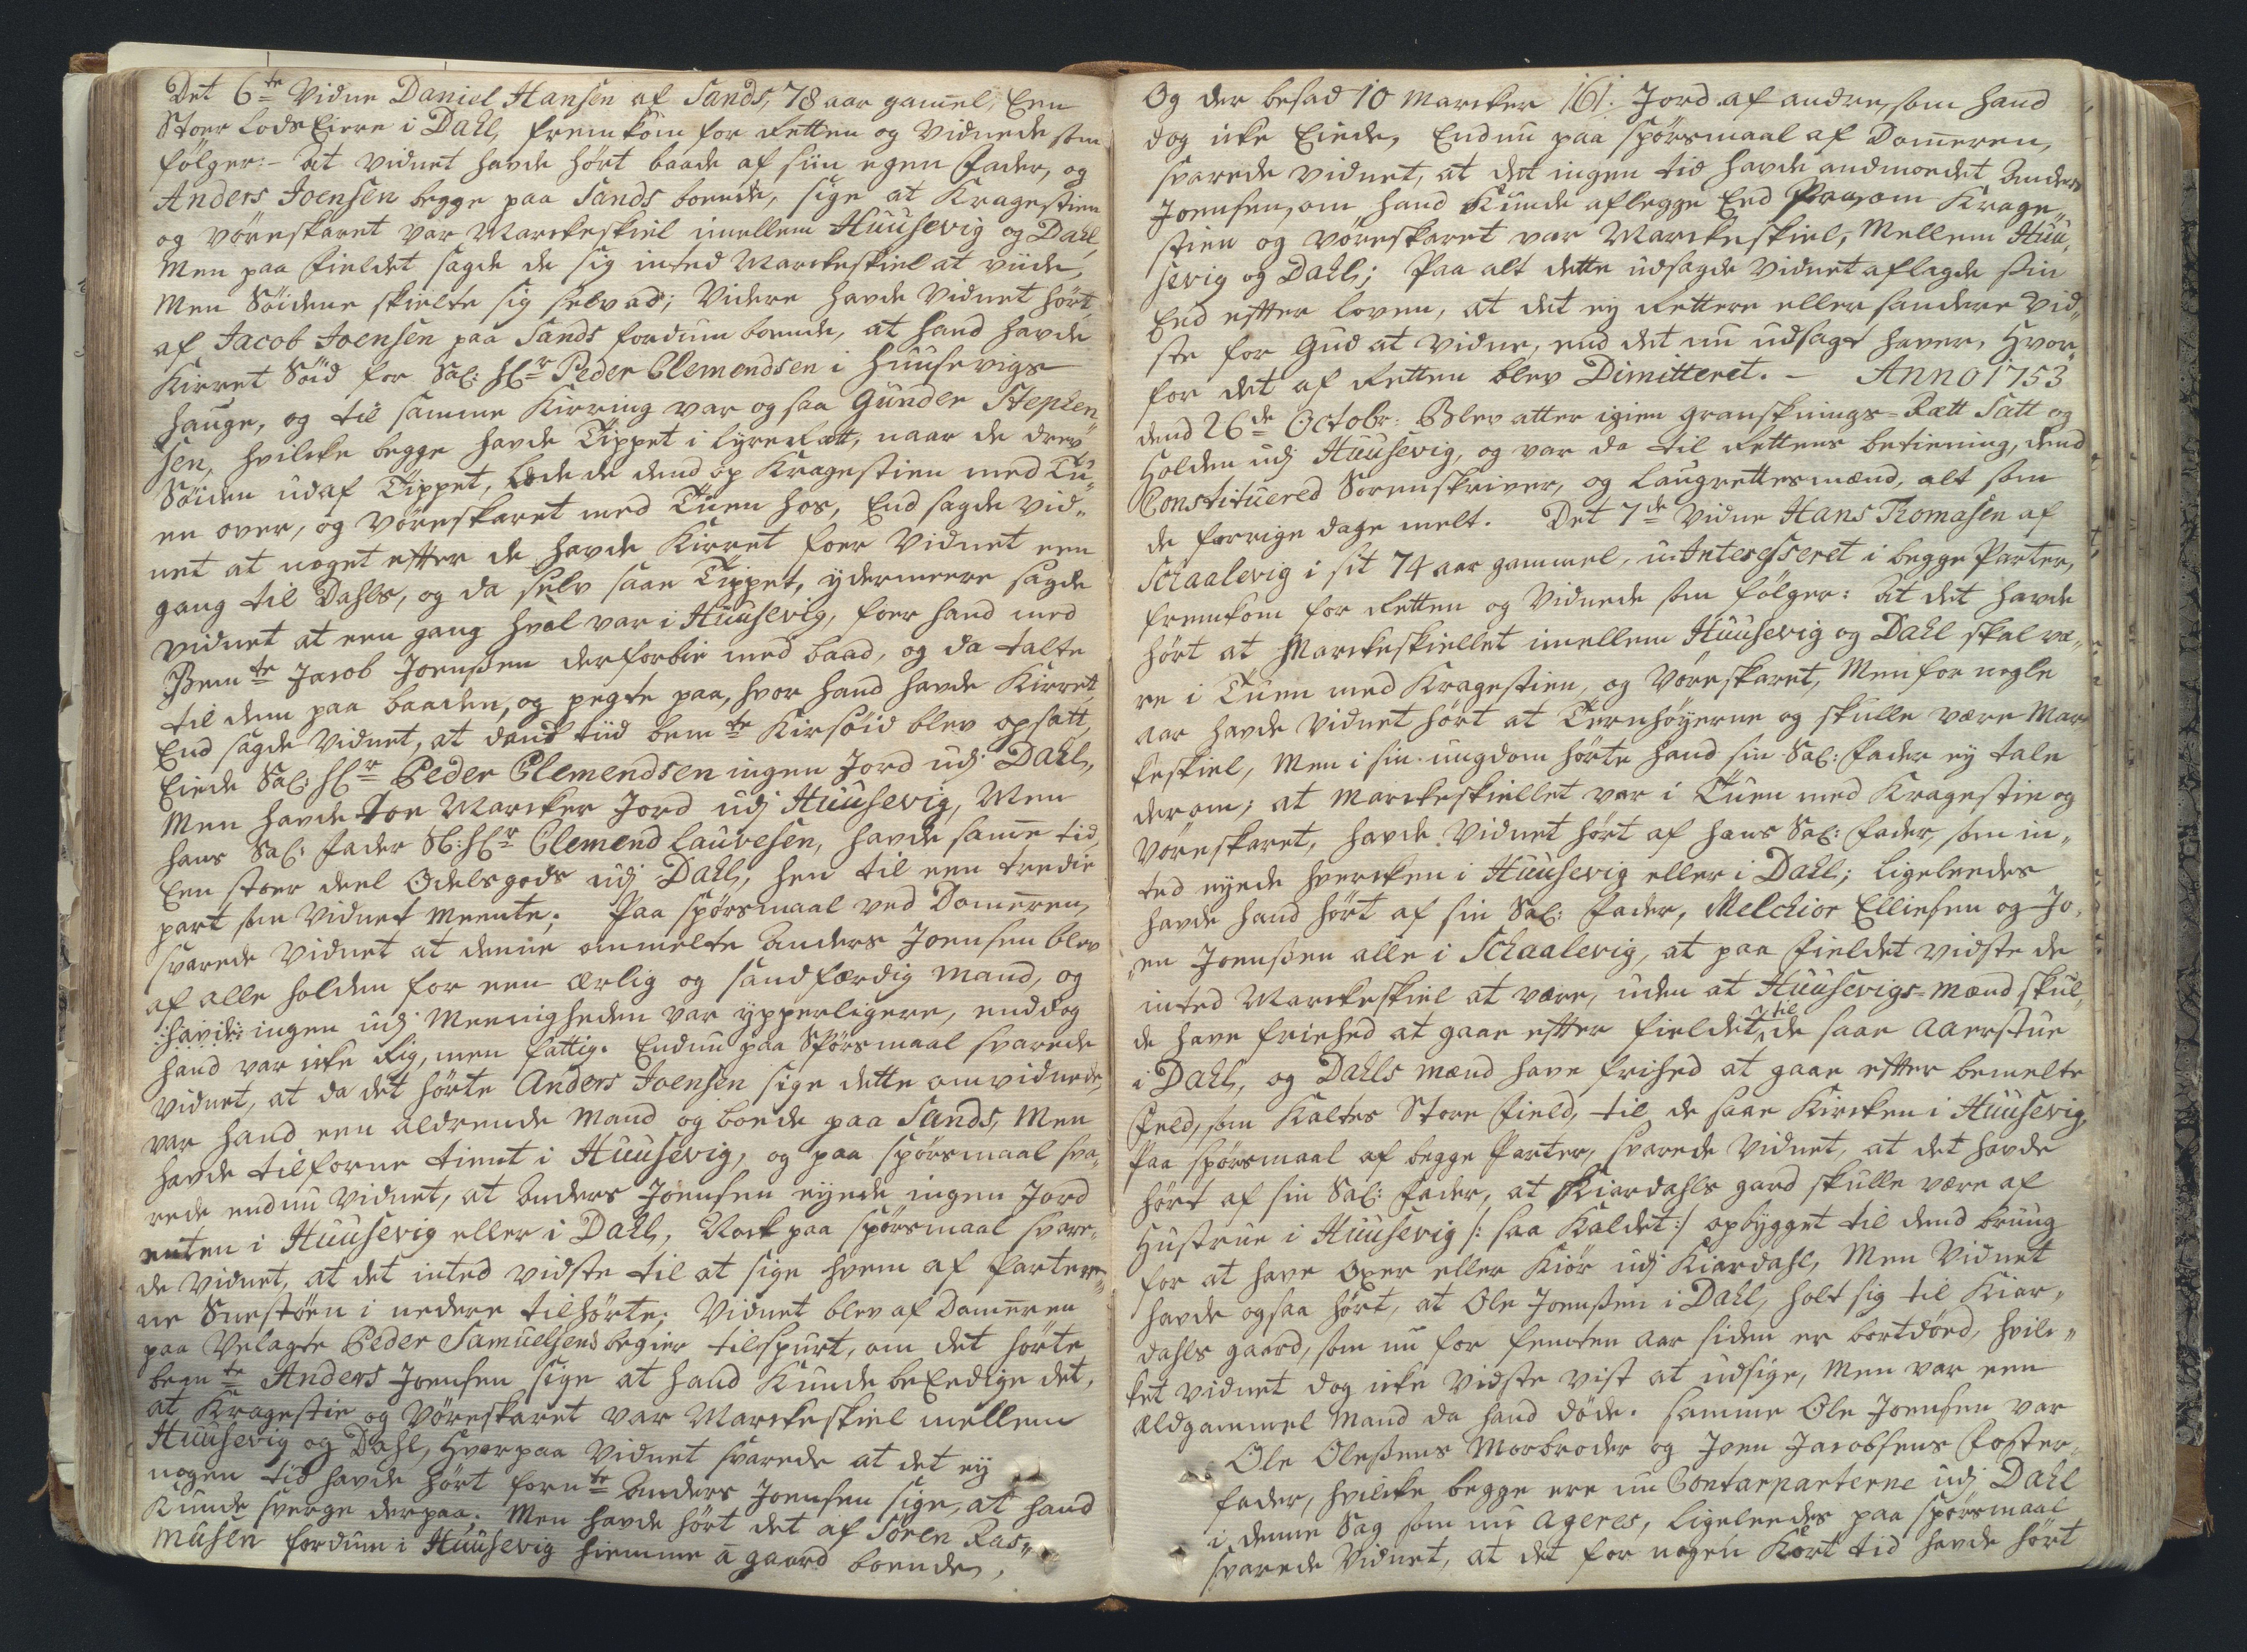 Det 6te Vidne Daniel Hansen af Sands, 78 aar gamel, Een
Stoer Lods Eiere i Dahl, fremkom for Retten og Vidnede som
følger:- at vidnet havde hørt baade af siin egen Fader, og
Anders Joensen begge paa Sands boende, sige at Kragestien
og vöreskaret var Marckeskiel imellem Huusevig og Dahl,
Men paa Fieldet sagde de sig inted Marckeskiel at viide,
Men Söidene skielte sig selv ad; Videre havde Vidnet hört
af Jacob Joensen paa Sands fordum boende, at hand havde
Kirret Söid for Sal: Hr Peder Clemendsen i Huusevigs
hauge, og til samme Kirring var og saa Gunder Stephen„
sen, hvilcke begge havde Tippet i lyre Rætt, naar de drev
Söiden ud af Tippet, lode de dend op Kragestien med Tu„
en over, og vöreskaret med Tuen hos, End sagde Vid„
net at noget efter de havde Kirret foer Vidnet een
gang til Dahls, og da selv saae Tippet, ydermeere sagde
vidnet at een gang hval var i Huusevig, foer hand med
Bemte Jacob Joensen derforbie med baad, og da talte
til dem paa baaden, og pegte paa, hvor hand havde Kirret,
End sagde Vidnet, at dend tiid bemte Kirsöid blev opsatt,
Eiede Sal: Hr Peder Clemendsen ingen Jord udj Dahl,
Men havde toe Marcker Jord udj Huusevig, Men
hans Sal: Fader Sl: Hr Clemend Lauvesen, havde same tid,
Een stoer deel Odelsgods udj Dahl, hen til een tredie
part som Vidnet meente; Paa spörsmaal ved Domeren,
svarede Vidnet at denne ommelte Anders Joensen blev
af alle holden for een ærlig og sandfærdig mand, og
:havde: ingen udj Meenigheden var ypperligere, enddog
hand var icke Rig, men fattig. Endnu paa Spörsmaal svarede
Vidnet, at da det hörte Anders Joensen sige dette omvidnede,
var hand een aldrende Mand og boede paa Sands, Men
havde tilforne tient i Huusevig, og paa spörsmaal sva„
rede endnu Vidnet, at Anders Joensen eyede ingen Jord
enten i Huusevig eller i Dahl, Nock paa spörsmaal svare„
de Vidnet, at det inted vidste til at sige hvem af Parter„
ne Snestöen i nedere tilhörte; Vidnet blev af Domeren
paa Velagte Peder Samuelsens begier tilspurt, om det hörte
bemte Anders Joensen sige at hand Kunde beEedige det,
at Kragestie og Vöreskaret var Marckeskiel mellem
Huusevig og Dahl, Hvorpaa Vidnet svarede at det ey
nogen tid havde hört fornte Anders Joensen sige, at hand
Kunde sverge derpaa. Men havde hört det af Sören Ras„
musen fordum i Huusevig hiemme a gaard boende,
Og der besad 10 Marcker 161. Jord af andre, som hand
dog icke Eiede, Endnu paa spörsmaal af Domeren,
svarede vidnet, at det ingen tid havde andmoedet Anders
Joensen, om hand Kunde aflegge Eed Paa, om Krage„
stien og vöreskaret var Marckeskiel, Mellem Huu„
sevig og Dahl; Paa alt dette udsagde Vidnet aflagde sin
Eed efter loven, at det ey Rettere eller sandere vid„
ste for Gud at vidne, end det nu udsagt haver, Hvor„
for det af Retten blev Dimitteret. - Anno 1753
dend 26de Octobr: Blev atter igien Gransknings-Rætt Satt og
Holden udj Huusevig, og var da til Rettens betiening, dend
Constituered Sorenskriver, og Laugrettesmænd, alt som
de forrige dage melt. Det 7de Vidne Hans Thomasen af
Schaalevig i sit 74 aar gammel, uInteresseret i begge Parter,
fremkom for Retten og Vidnede som fölger: At det havde
hört at Marckeskiellet imellem Huusevig og Dahl skal væ„
re i Tuen med Kragestien, og Vöreskaret, Men for nogle
aar havde Vidnet hört at Ternhöyerne og skulle være Mar„
keskiel, Men i sin ungdom hörte hand sin Sal: Fader ey tale
derom; at Marckeskiellet var i Tuen med Kragestie og
Vöreskaret, havde Vidnet hört af hans Sal: Fader, som in„
ted eyede hvercken i Huusevig eller i Dahl; Ligeleedes
havde hand hört af sin Sal: Fader, Melchior Elliesen og Jo„
„en Joensen alle i Schaalevig, at paa Fieldet vidste de
inted Marckeskiel at være, uden at Huusevigs-Mænd skul„
de have friehed at gaae efter fieldet, til de saae Aaerstue
i Dahl, og Dahls mænd have frihed at gaae efter bemelte
Feld, som Kaltes Store Field, til de saae Kircken i Huusevig,
Paa spörsmaal af begge Parter, svarede Vidnet, at det havde
hört af sin Sal: Fader, at Kiardahls gard skulle være af
Hustrue i Huusevig /: saa Kaldet:/ opbygget til dend brüug
for at have Oxer eller Kiör udj Kiardahl, Men Vidnet
havde ogsaa hört, at Ole Joensen i Dahl, holt sig til Kiar„
dahls gaard, som nu for femten aar siden er bortdöed, hvil„
ket vidnet dog icke vidste vist at udsige, Men var een
ældgammel Mand da hand döde. samme Ole Joensen var
Ole Olesens Morbroder og Joen Jacobsens Foster„
fader, hvilcke begge ere nu Contarparterne udj Dahl
i denne Sag som nu ageres, ligeleedes paa spörsmaal
svarede Vidnet, at det for nogen Kort tid havde hört